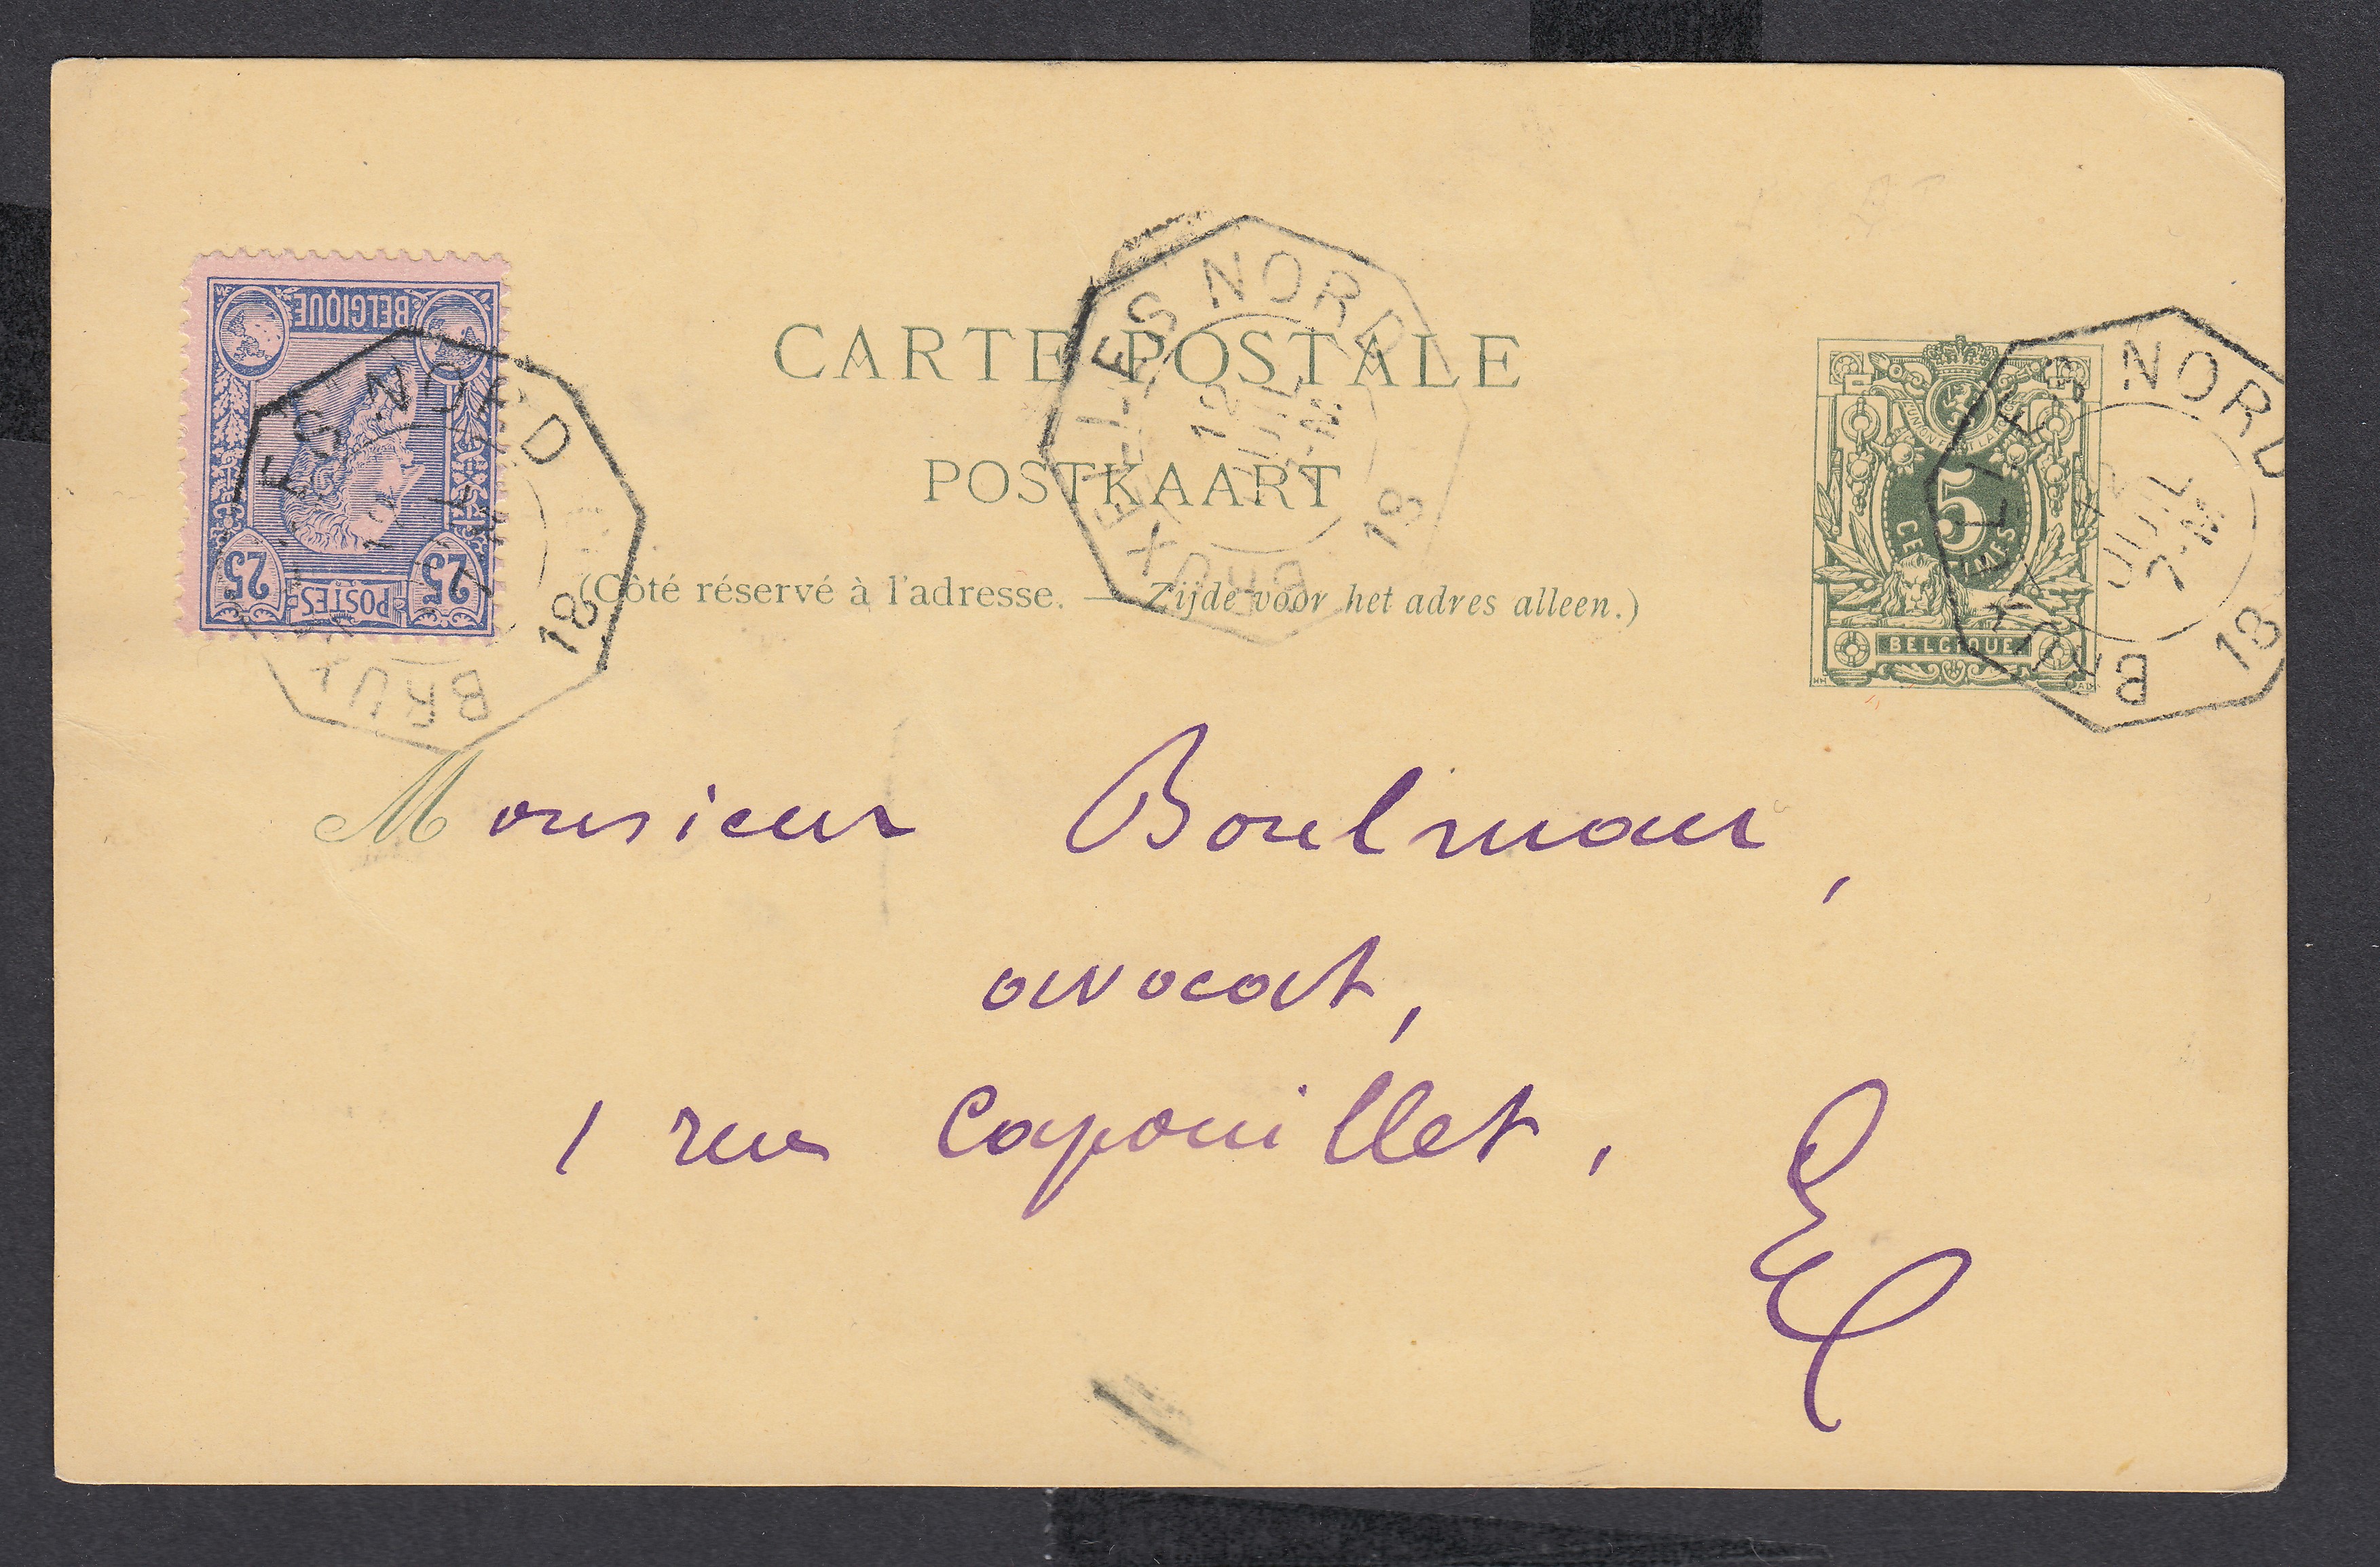 BELGIQUE
POSTES
25 25
BRUXELLES NORD
12
JUIL
7-M
18
CARTE POSTALE
POSTKAART
(Côté réservé à l'adresse. — Zijde voor het adres alleen.)
5
CENTIMES
BELGIQUE
BRUXELLES NORD
12
JUIL
7-M
18
BRUXELLES NORD
12
JUIL
7-M
18
Monsieur Boelman,
avocat,
1 rue Capouillet,